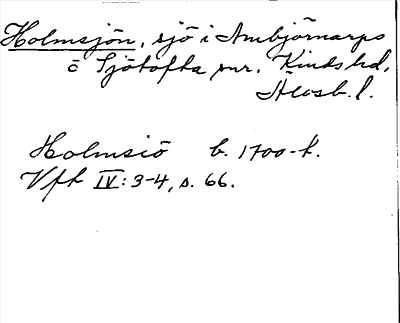 Holmsjön, sjö i Ambjörnarps
o Sjötofta snr. Kinds hd,
Älvsb. l.
Holmsiö b. 1700-t.
Vft IV: 3-4, s. 66.